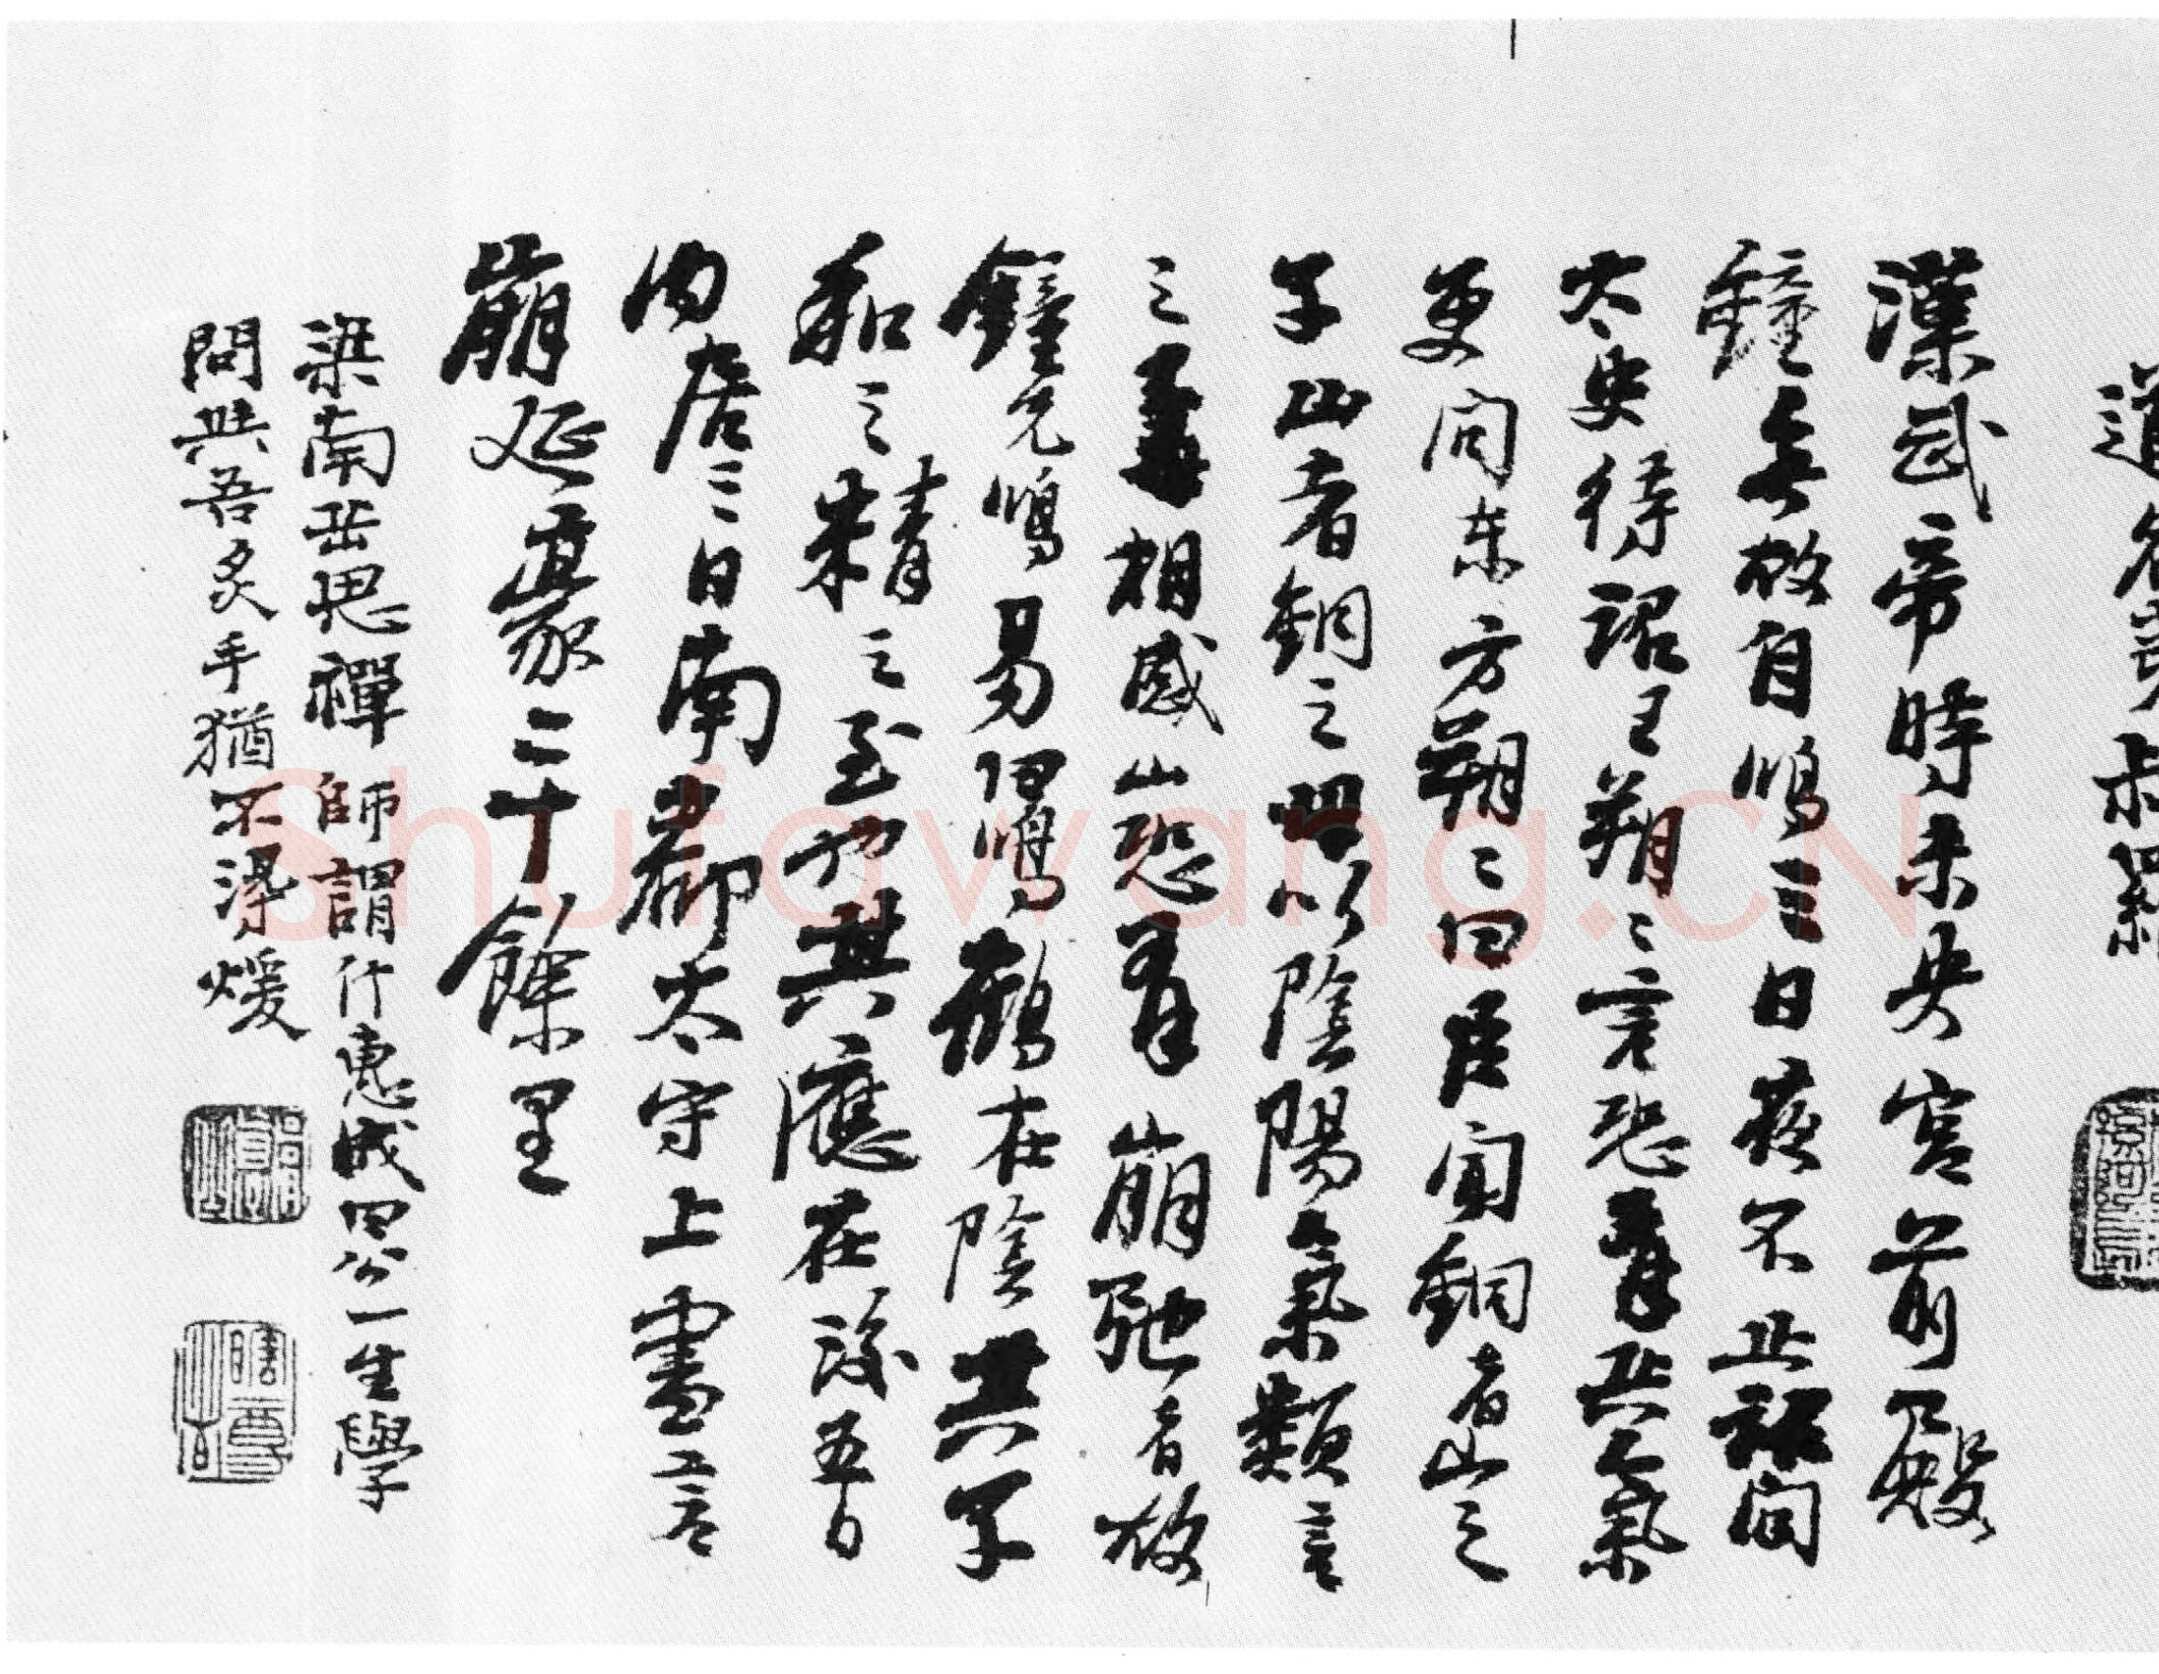 道
漢武帝時未央宮前殿
鐘無故自鳴三日夜不止詔問
太史待詔王朔〻言恐有兵氣
更问东方朔〻曰臣聞銅者山之
子山者銅之母以陰陽氣類言
之子母相感山恐有崩弛者故
鐘先鳴易曰鳴鶴在陰其子
和之精之至也其應在後五日
内居三日南郡太守上書言
山崩延袤二十餘里
梁南岳思禪師謂行惠成曰公一生學
問與吾炙手猶不得煖
Shufawang.CN